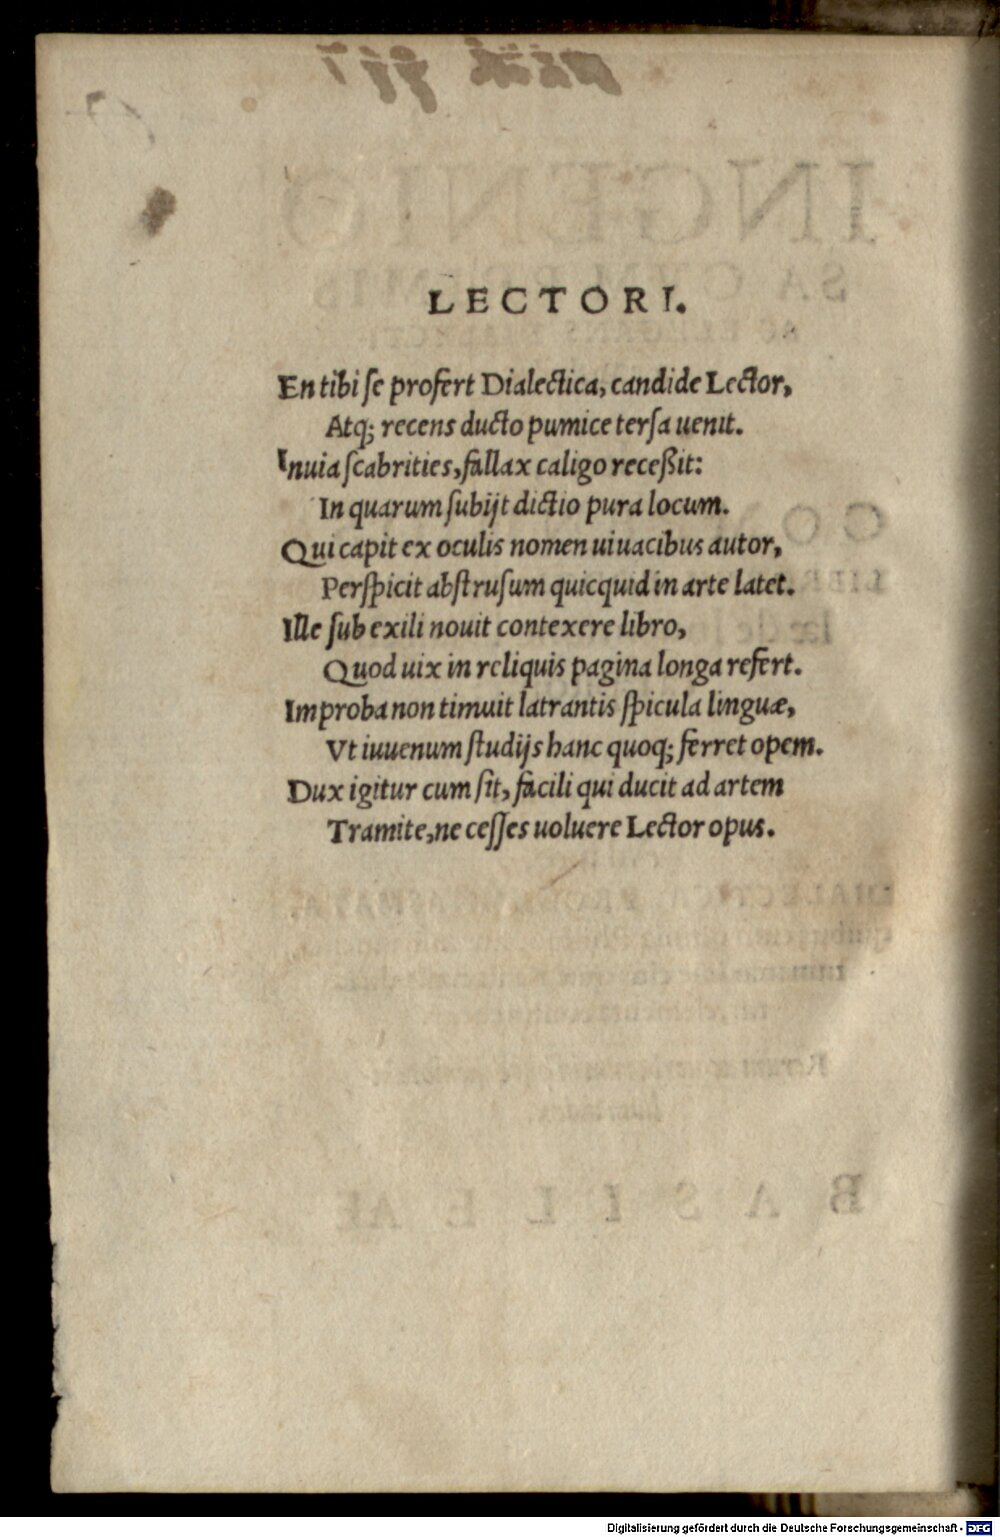 LECTORI.
En tibi se profert Dialectica, candide Lector,
Atq; recens ducto pumice tersa uenit.
Inuia scabrities, fallax caligo receßit:
In quarum subijt dictio pura locum.
Qui capit ex oculis nomen uiuacibus autor,
Perspicit abstrusum quicquid in arte latet.
Ille sub exili nouit contexere libro,
Quod uix in reliquis pagina longa refert.
Improba non timuit latrantis spicula linguæ,
Vt iuuenum studijs hanc quoq; ferret opem.
Dux igitur cum sit, facili qui ducit ad artem
Tramite, ne cesses uoluere Lector opus.
Digitalisierung gefördert durch die Deutsche Forschungsgemeinschaft - DFG